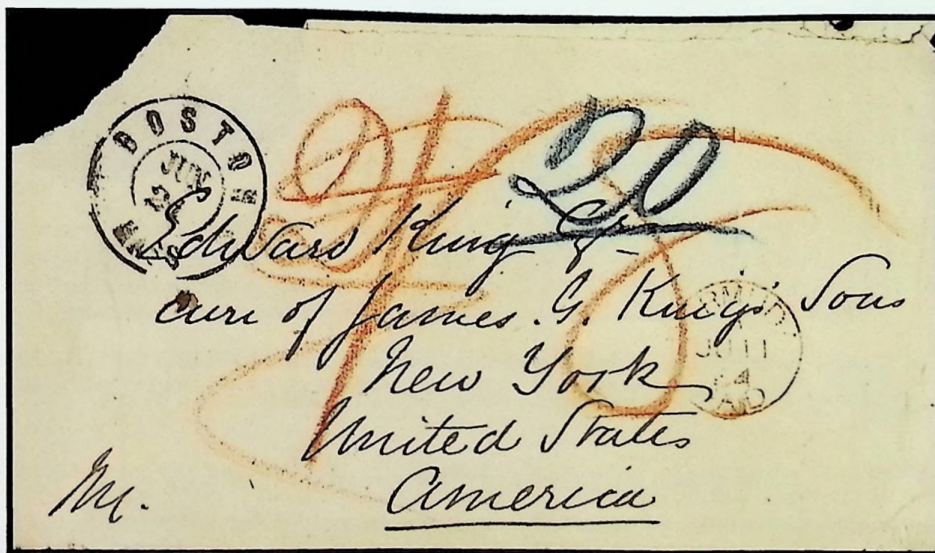 BOSTON
JUN
MASS
20
Edward King Esqr
care of James. G. King's Sons
New York
United States
America
JU 11
PAID